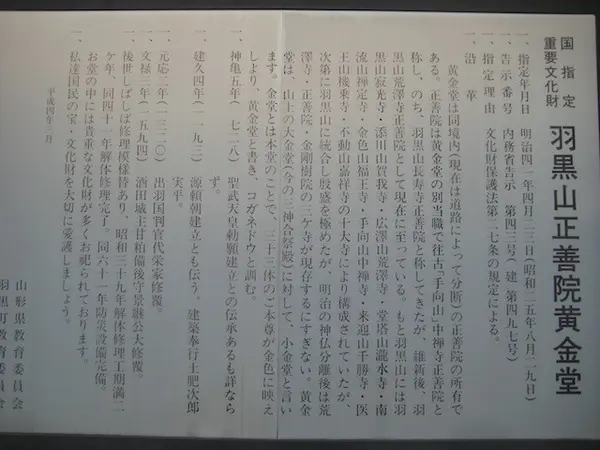 国指定
重要文化財
羽黒山正善院黄金堂
一、指定年月日 明治四一年四月二三日(昭和二五年八月二九日)
一、告示番号 内務省告示 第四三号(建 第四九七号)
一、指定理由 文化財保護法第二七条の規定による。
一、沿革
黄金堂は同境内(現在は道路によって分断)の正善院の所有で
ある。正善院は黄金堂の別当職で往古「手向山」中禅寺正善院と
称し、のち、羽黒山長寿寺正善院と称してきたが、維新後、羽
黒山荒澤寺正善院として現在に至っている。もと羽黒山には羽
黒山寂光寺・添川山賀我寺・広澤山荒澤寺・堂塔山瀧水寺・南
流山禅定寺・金色山福王寺・手向山中禅寺・来迎山千勝寺・医
王山機乗寺・不動山嘉祥寺の十大寺により構成されていたが、
次第に羽黒山に統合し殷盛を極めたが、明治の神仏分離後は荒
澤寺・正善院・金剛樹院の三ケ寺が現存するにすぎない。黄金
堂は、山上の大金堂(今の三神合祭殿)に対して、小金堂と言い
ます。金堂とは本堂のことで、三十三体のご本尊が金色に映え
しより、黄金堂と書き、コガネドウと訓む。
一、神亀五年(七二八) 聖武天皇勅願建立との伝承あるも詳なら
ず。
一、建久四年(一一九三) 源頼朝建立とも伝う。建築奉行土肥次郎
実平。
一、元応二年(一三二〇) 出羽国判官代栄家修覆。
一、文禄三年(一五九四) 酒田城主甘粕備後守景継公大修覆。
一、後世しばしば修理模様替あり、昭和三十九年解体修理工期満二
ケ年、同四十一年解体修理完了。同六十一年防災設備完備。
お堂の中には貴重な文化財が多くお祀られております。
一、私達国民の宝・文化財を大切に愛護しましょう。
平成四年三月
山形県教育委員会
羽黒町教育委員会